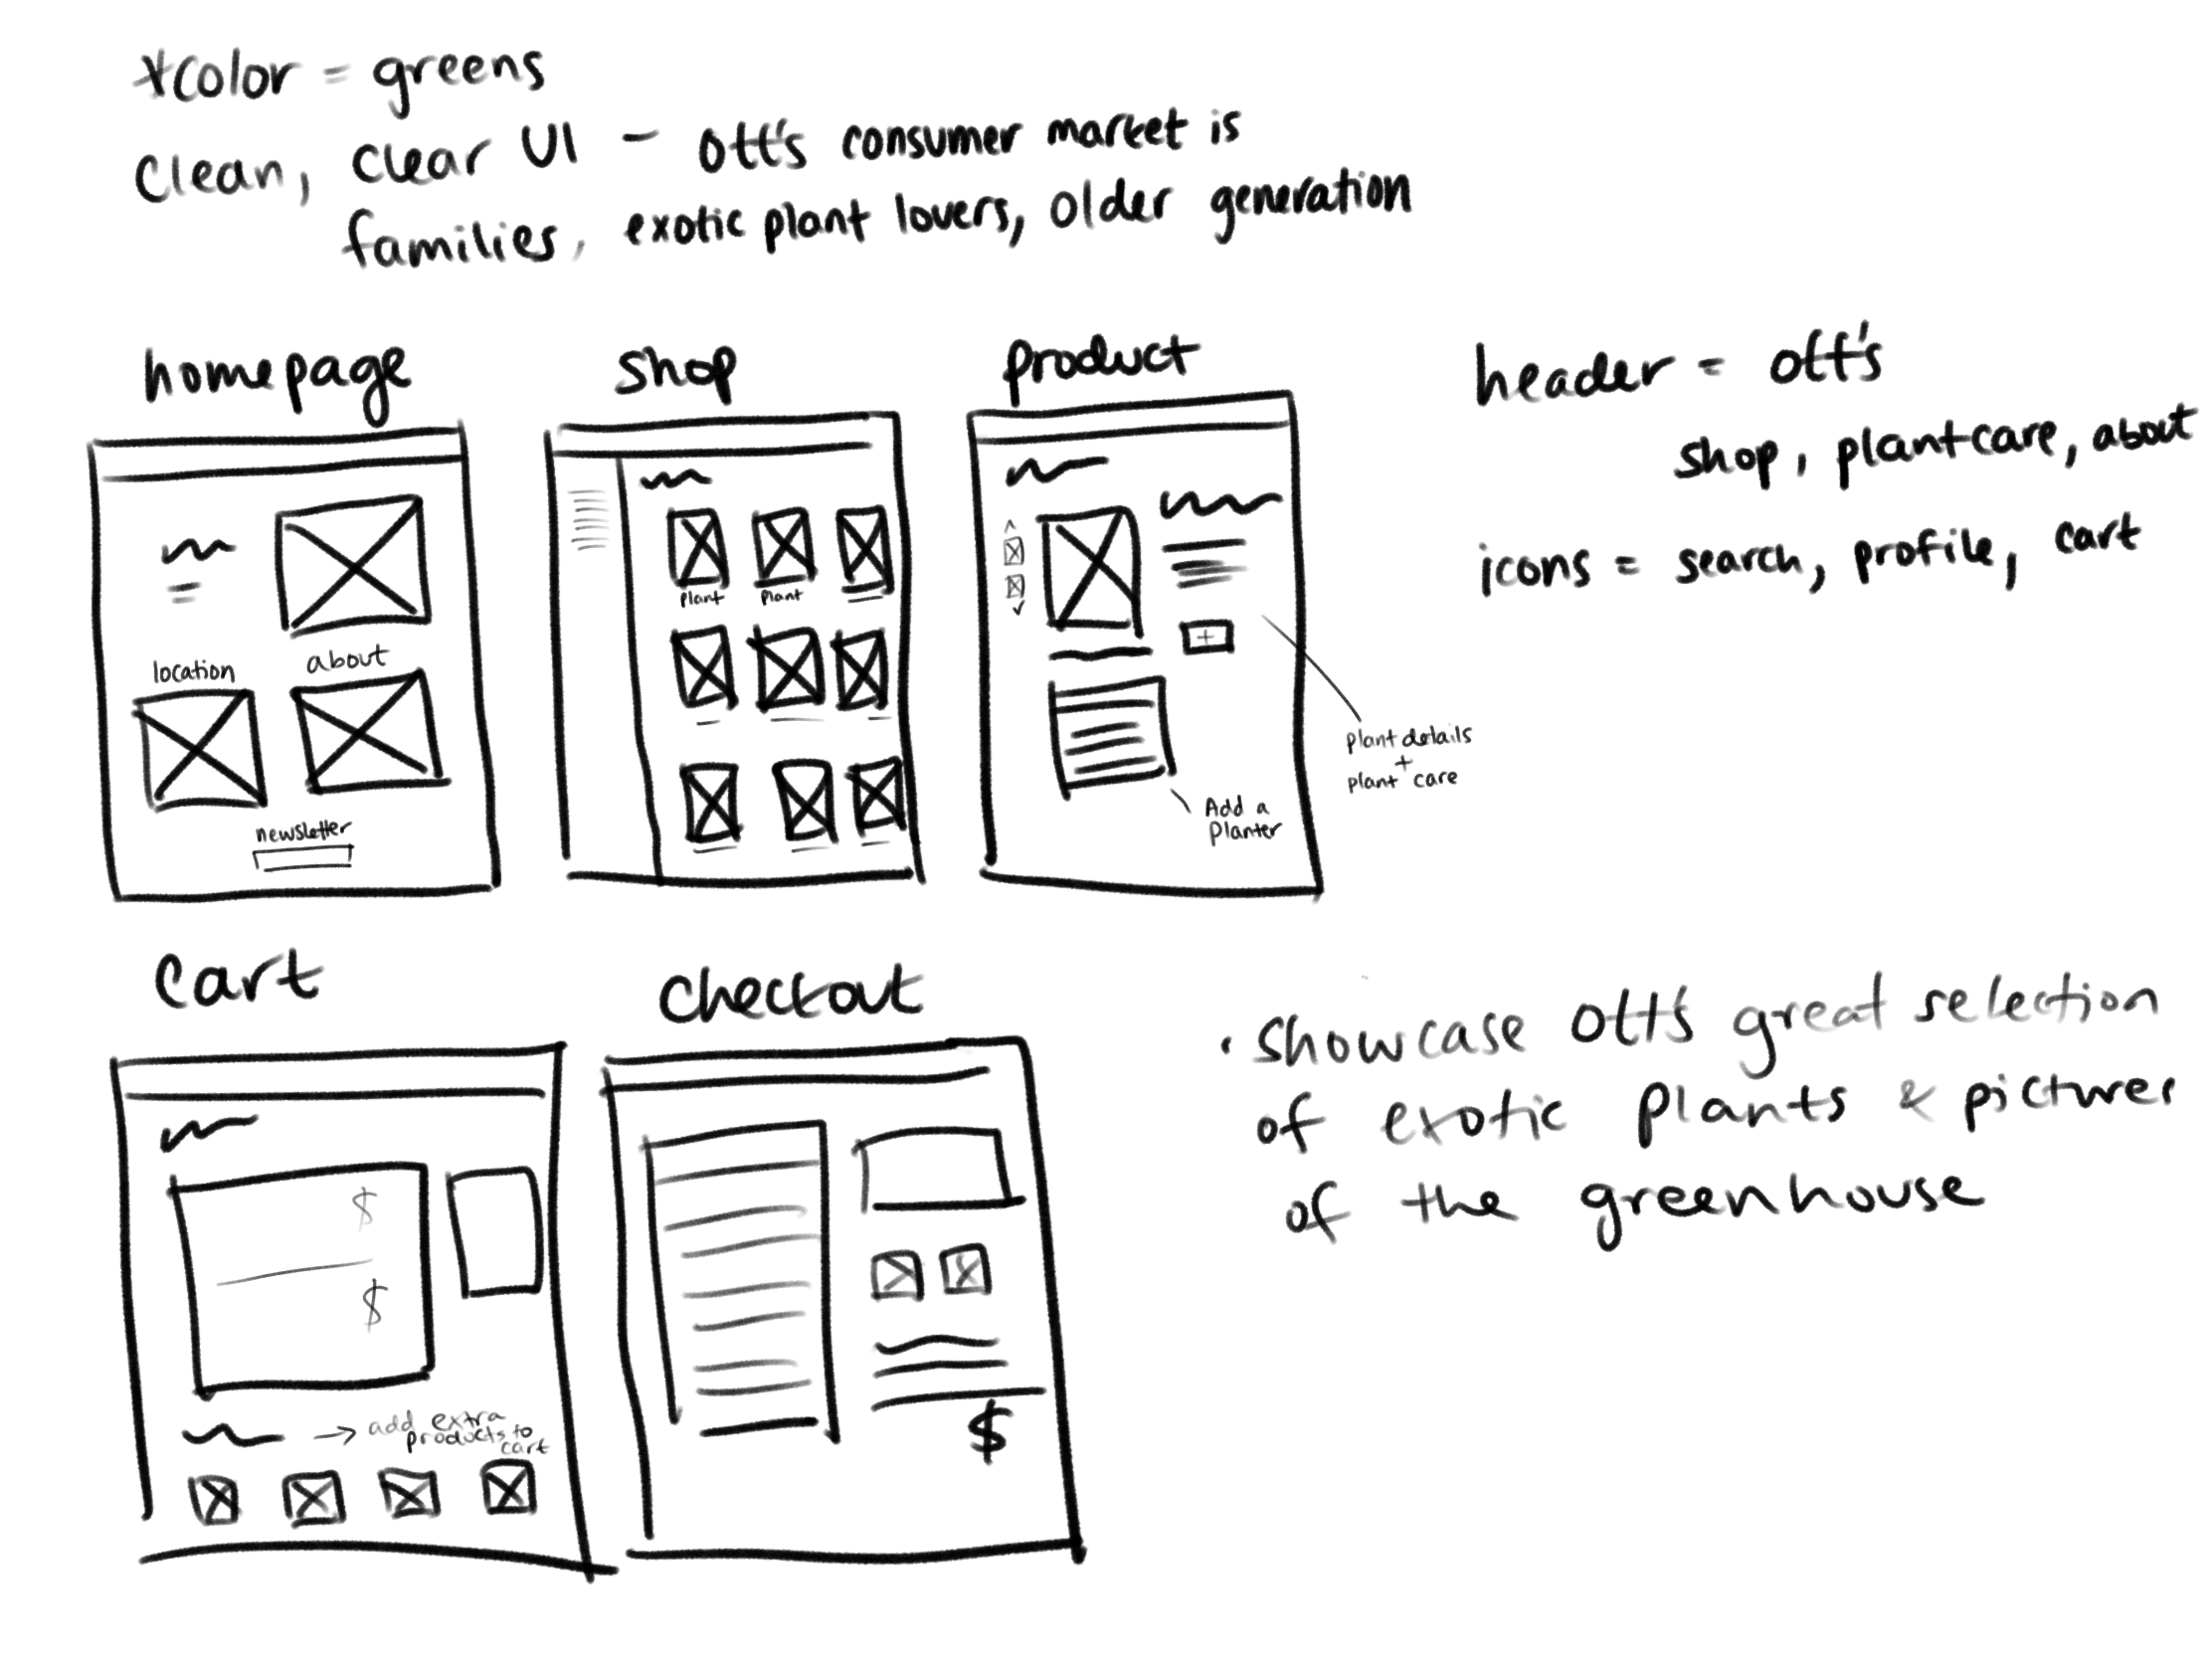 *color = greens
Clean, clear UI - ott's consumer market is
families, exotic plant lovers, older generation
homepage
location
about
newsletter
shop
plant
plant
product
+
plant details
+
plant care
Add a
Planter
header = ott's
shop, plantcare, about
icons = search, profile, cart
cart
$
$
→ add extra
products to
cart
checkout
$
• showcase ott's great selection
of exotic plants & pictures
of the greenhouse